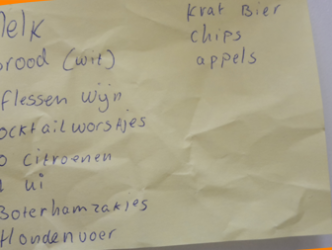 Melk
brood (wit)
flessen wijn
cocktailworstjes
0 citroenen
ui
Boterhamzakjes
Hondenvoer
Krat Bier
chips
appels